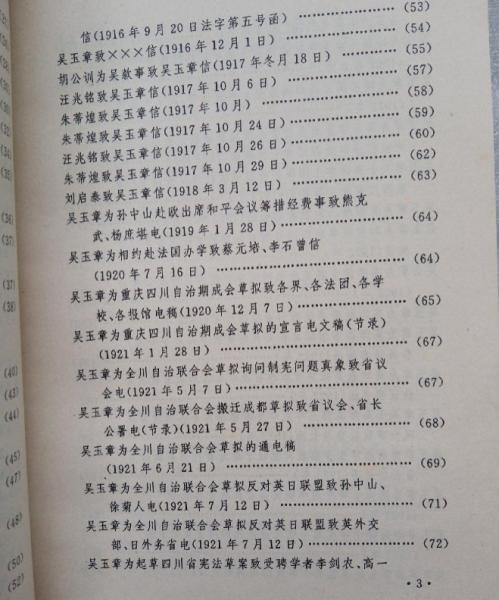 信(1916年9月20日法字第五号函) ……………… (53)
吴玉章致×××信(1916年12月1日) ……………… (54)
胡公训为吴敘事致吴玉章信(1917年冬月18日) ……… (55)
汪兆铭致吴玉章信(1917年10月6日) ……………… (57)
朱蒂煌致吴玉章信(1917年10月) ……………… (58)
朱蒂煌致吴玉章信(1917年10月24日) ……………… (59)
汪兆铭致吴玉章信(1917年10月26日) ……………… (60)
朱蒂煌致吴玉章信(1917年10月29日) ……………… (62)
刘启泰致吴玉章信(1918年3月12日) ……………… (63)
吴玉章为孙中山赴欧出席和平会议筹措经费事致熊克
武、杨庶堪电(1919年1月28日) ……………… (64)
吴玉章为相约赴法国办学致蔡元培、李石曾信
(1920年7月16日) ……………… (64)
吴玉章为重庆四川自治期成会草拟致各界、各法团、各学
校、各报馆电稿(1920年12月7日) ……………… (65)
吴玉章为重庆四川自治期成会草拟的宣言电文稿(节录)
(1921年1月28日) ……………… (67)
吴玉章为全川自治联合会草拟询问制宪问题真象致省议
会电(1921年5月7日) ……………… (67)
吴玉章为全川自治联合会搬迁成都草拟致省议会、省长
公署电(节录)(1921年5月27日) ……………… (68)
吴玉章为全川自治联合会草拟的通电稿
(1921年6月21日) ……………… (69)
吴玉章为全川自治联合会草拟反对英日联盟致孙中山、
徐菊人电(1921年7月12日) ……………… (71)
吴玉章为全川自治联合会草拟反对英日联盟致英外交
部、日外务省电(1921年7月12日) ……………… (72)
吴玉章为起草四川省宪法草案致受聘学者李剑农、高一
·3·
(36)
(37)
(37)
(38)
(40)
(43)
(44)
(45)
(47)
(48)
(50)
(52)